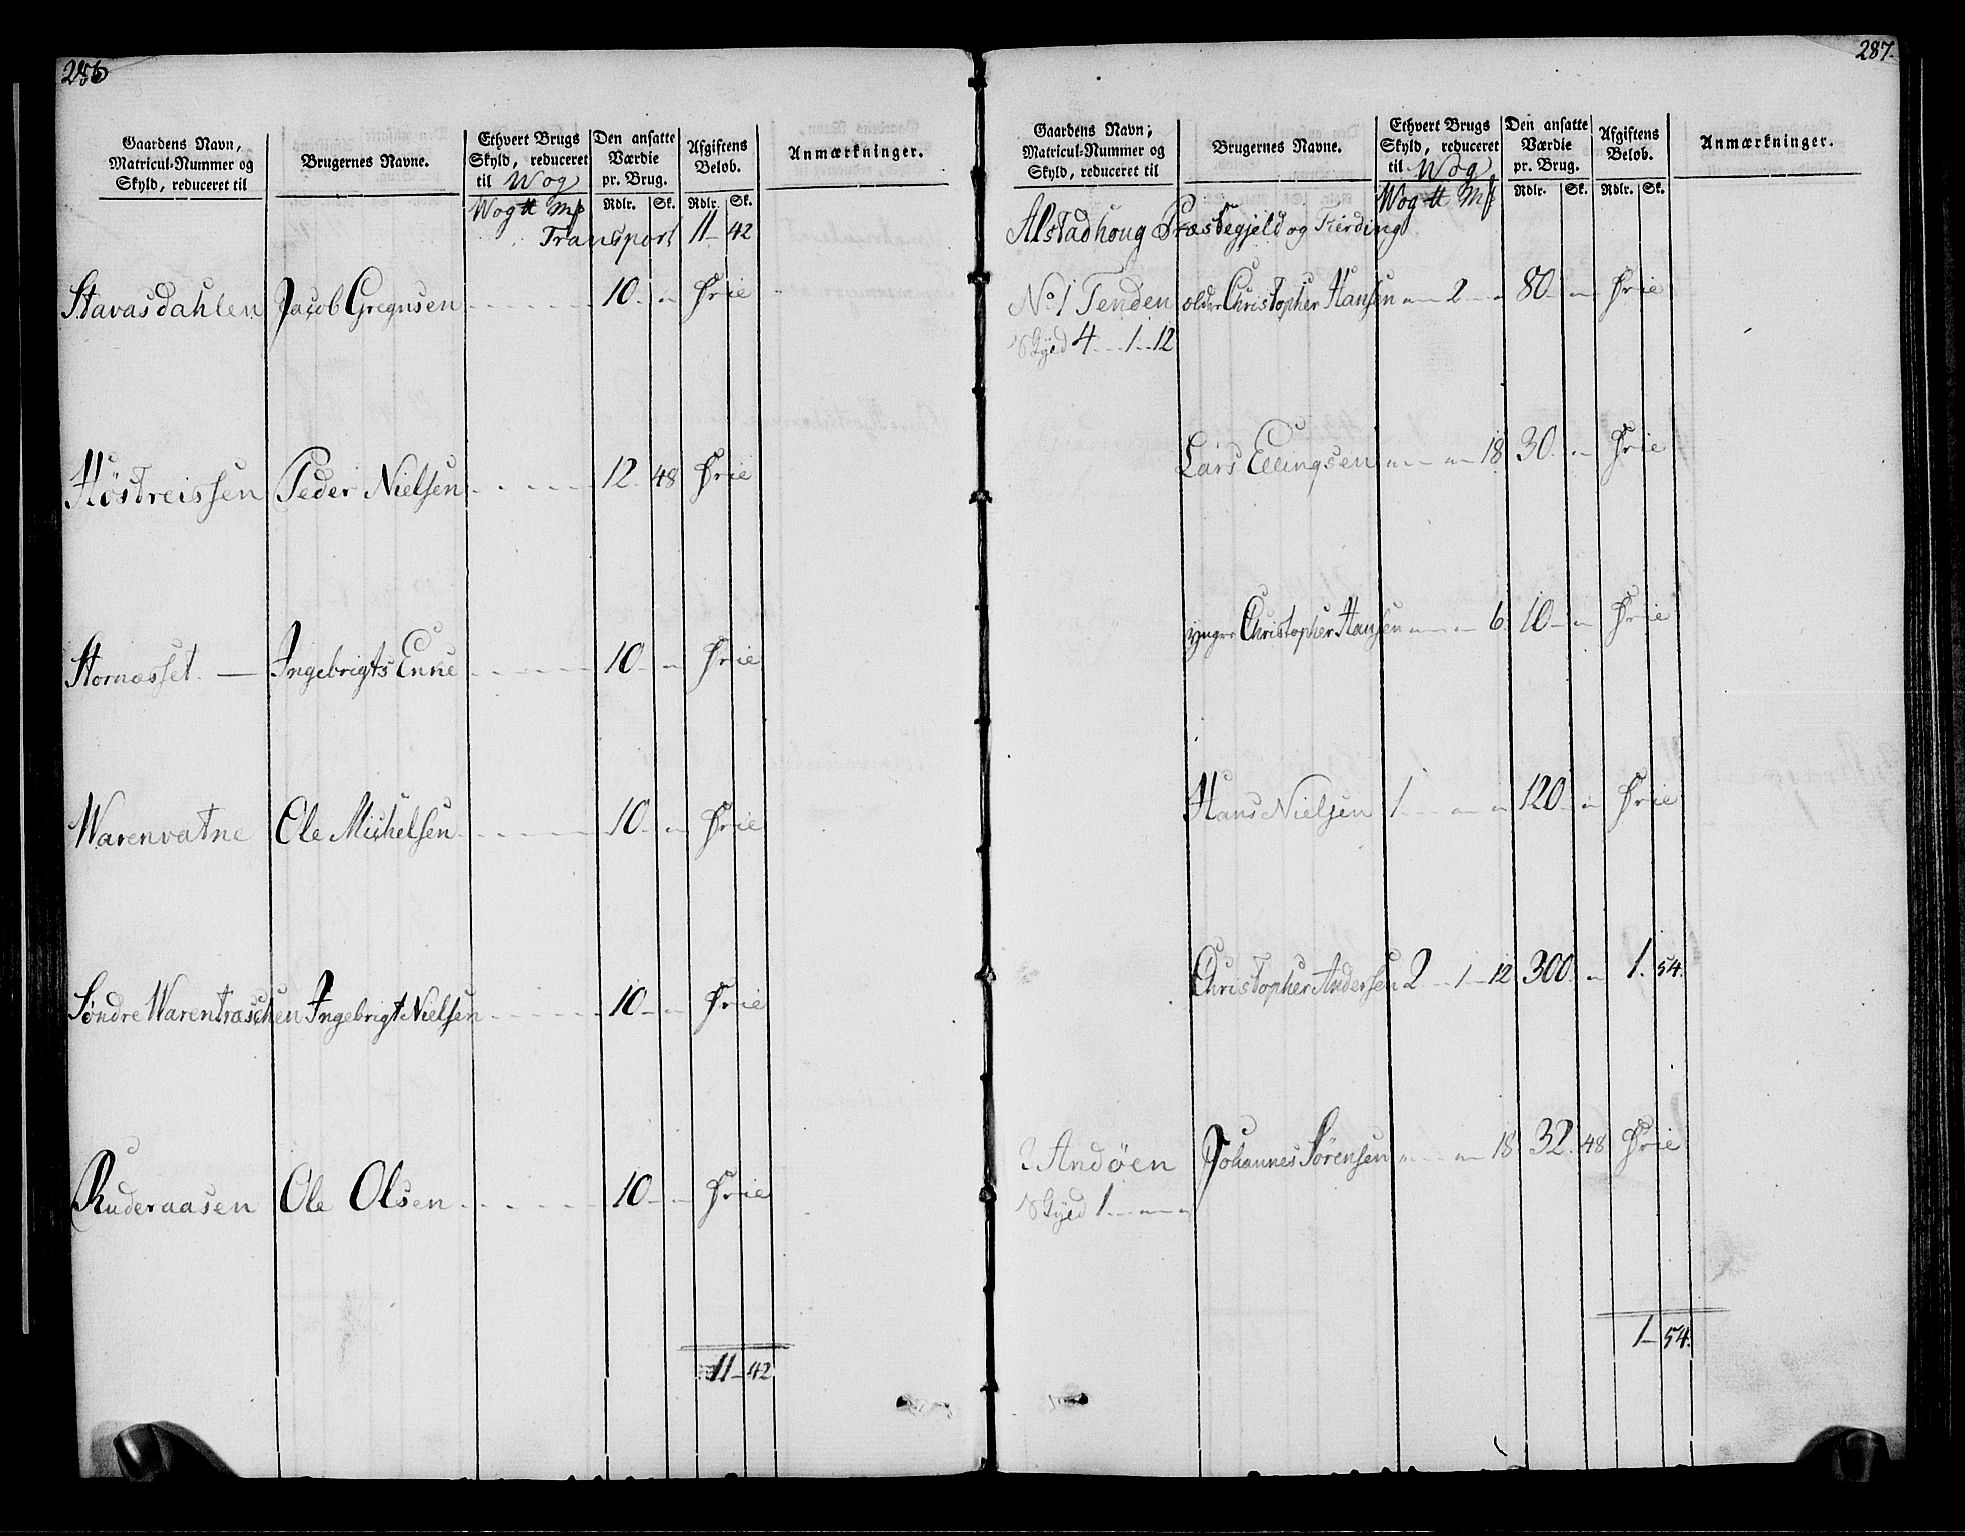 286
Gaardens Navn, Matricul-Nummer og Skyld, reduceret til | Brugernes Navne. | Ethvert Brugs Skyld, reduceret til Wog | Den ansatte Værdie pr. Brug. | Afgiftens Beløb. | Anmærkninger.
Wog ℔ Mk | Rdlr. | Sk. | Rdlr. | Sk.
Transport 11 - 42
Stavasdahlen Jacob Gregusen 10 - " Frie
Høstreissen Peder Nielsen 12 48 Frie
Hornæsset - Ingebrigts Enke 10 - " Frie
Warenvatne Ole Michelsen 10 - " Frie
Søndre Warentraschen Ingebrigt Nielsen 10 - " Frie
Ruderaasen Ole Olsen 10 - " Frie
11 - 42
287.
Gaardens Navn, Matricul-Nummer og Skyld, reduceret til | Brugernes Navne. | Ethvert Brugs Skyld, reduceret til Wog | Den ansatte Værdie pr. Brug. | Afgiftens Beløb. | Anmærkninger.
Wog ℔ Mk | Rdlr. | Sk. | Rdlr. | Sk.
Alstadhoug Præstegjeld og Fierding
No 1 Tenden ældre Christopher Hansen " - 2 - " 80 - " Frie
Skyld 4 - 1 - 12
Lars Ellingsen " - " 18 30 - " Frie
yngre Christopher Hansen " - " 6 10 - " Frie
Hans Nielsen 1 - " - " 120 - " Frie
Christopher Andersen 2 - 1 - 12 300 - " 1. 54.
2 Andøen Johannes Sørensen " - " 18 32. 48 Frie
Skyld 1 - " - "
1 - 54.